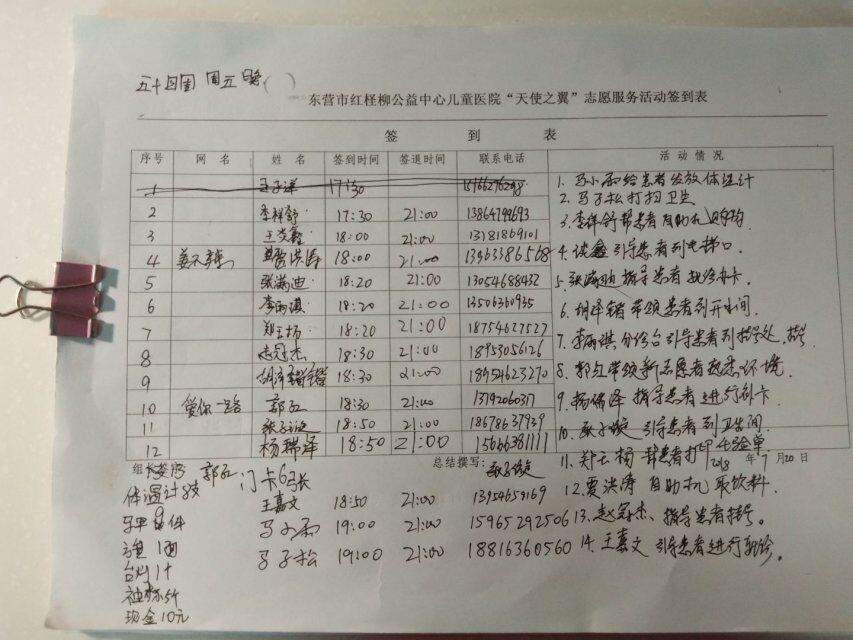 五十四周 周五 晚( )
东营市红柽柳公益中心儿童医院“天使之翼”志愿服务活动签到表
签 到 表
序号 网 名 姓 名 签到时间 签退时间 联系电话 活 动 情 况
1 王子洋 17:30
2 李梓舒 17:30 21:00 13864799693
3 18:00 21:00 13181869101
4 贾洪涛 18:00 21:00 13963386568
5 张满迪 18:20 21:00 13054688432
6 李丽琪 18:20 21:00 13506360935
7 郑云杨 18:20 21:00 18754627527
8 赵冠杰 18:30 21:00 18953056126
9 胡泽锴 18:30 21:00 18954623270
10 爱你一路 郭红 18:30 21:00
11 18:50 21:00 18678637939
12 杨瑞泽 18:50 21:00 15666381111
1. 马小雨给患者发放体温计
2. 马子松打扫卫生
3. 李梓舒帮患者自助机
4. 引导患者到电梯口
5. 张满迪指导患者 办卡
6. 胡泽锴带领患者到开水间
7. 李丽琪分诊台引导患者到挂号处
8. 郭红带领新志愿者熟悉环境
9. 杨瑞泽指导患者进行办卡
10. 引导患者到卫生间
11. 郑云杨 帮患者打印化验单
2018 年 7 月 20 日
12. 贾洪涛 自助机 取饮料
13. 赵冠杰、指导患者挂号。
14. 王嘉文 引导患者进行就诊。
组长签字 郭红 总结撰写:
门卡6张
体温计
王嘉文 18:50 21:00 13954659169
马小雨 19:00 21:00 15965292506
马子松 19:00 21:00 18816360560
台灯1个
袖标5个
现金10元